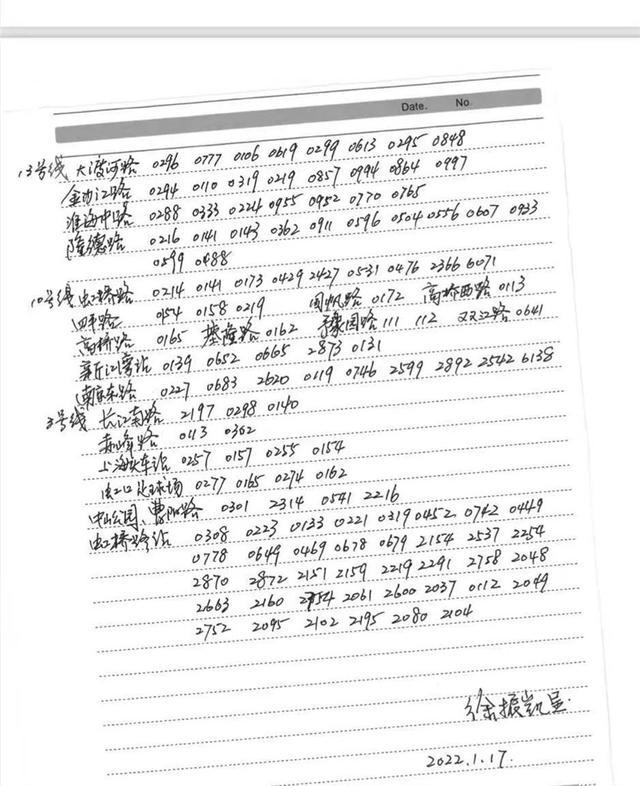 Date. No.
13号线 大渡河路 0296 0777 0106 0619 0299 0613 0295 0848
金沙江路 0294 0110 0319 0219 0857 0994 0864 0997
淮海中路 0288 0333 0224 0955 0952 0770 0765
隆德路 0216 0141 0143 0362 0911 0596 0504 0556 0607 0933
0599 0488
10号线 虹桥路 0214 0141 0173 0429 2427 0531 0476 2366 6071
四平路 0154 0158 0219 国帆路 0172 高桥西路 0113
高桥路 0165 基隆路 0162 豫园路 111 112 双江路 0641
新江湾站 0139 0652 0665 2873 0131
南京东路 0227 0683 2620 0119 0746 2599 2892 2542 6138
3号线 长江南路 2197 0298 0140
赤峰路 0113 0302
上海火车站 0257 0157 0255 0154
虹口足球场 0277 0165 0274 0162
中山公园、曹阳路 0301 2314 0541 2216
虹桥路站 0308 0223 0133 0221 0319 0452 0742 0449
0778 0649 0469 0678 0679 2154 2537 2254
2870 2872 2151 2159 2219 2291 2758 2048
2663 2160 2754 2061 2600 2037 0112 2049
2752 2095 2102 2195 2080 2104
徐振凯呈
2022.1.17.